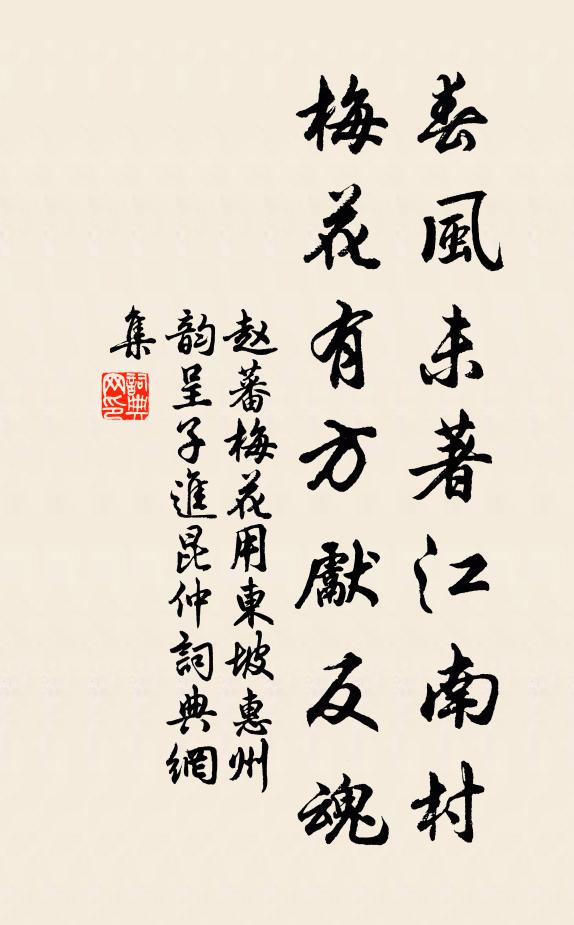 春風未著江南村
梅花有方獻反魂
赵蕃梅花用東坡惠州
韵呈子進昆仲詞典網
集
詞典
网印